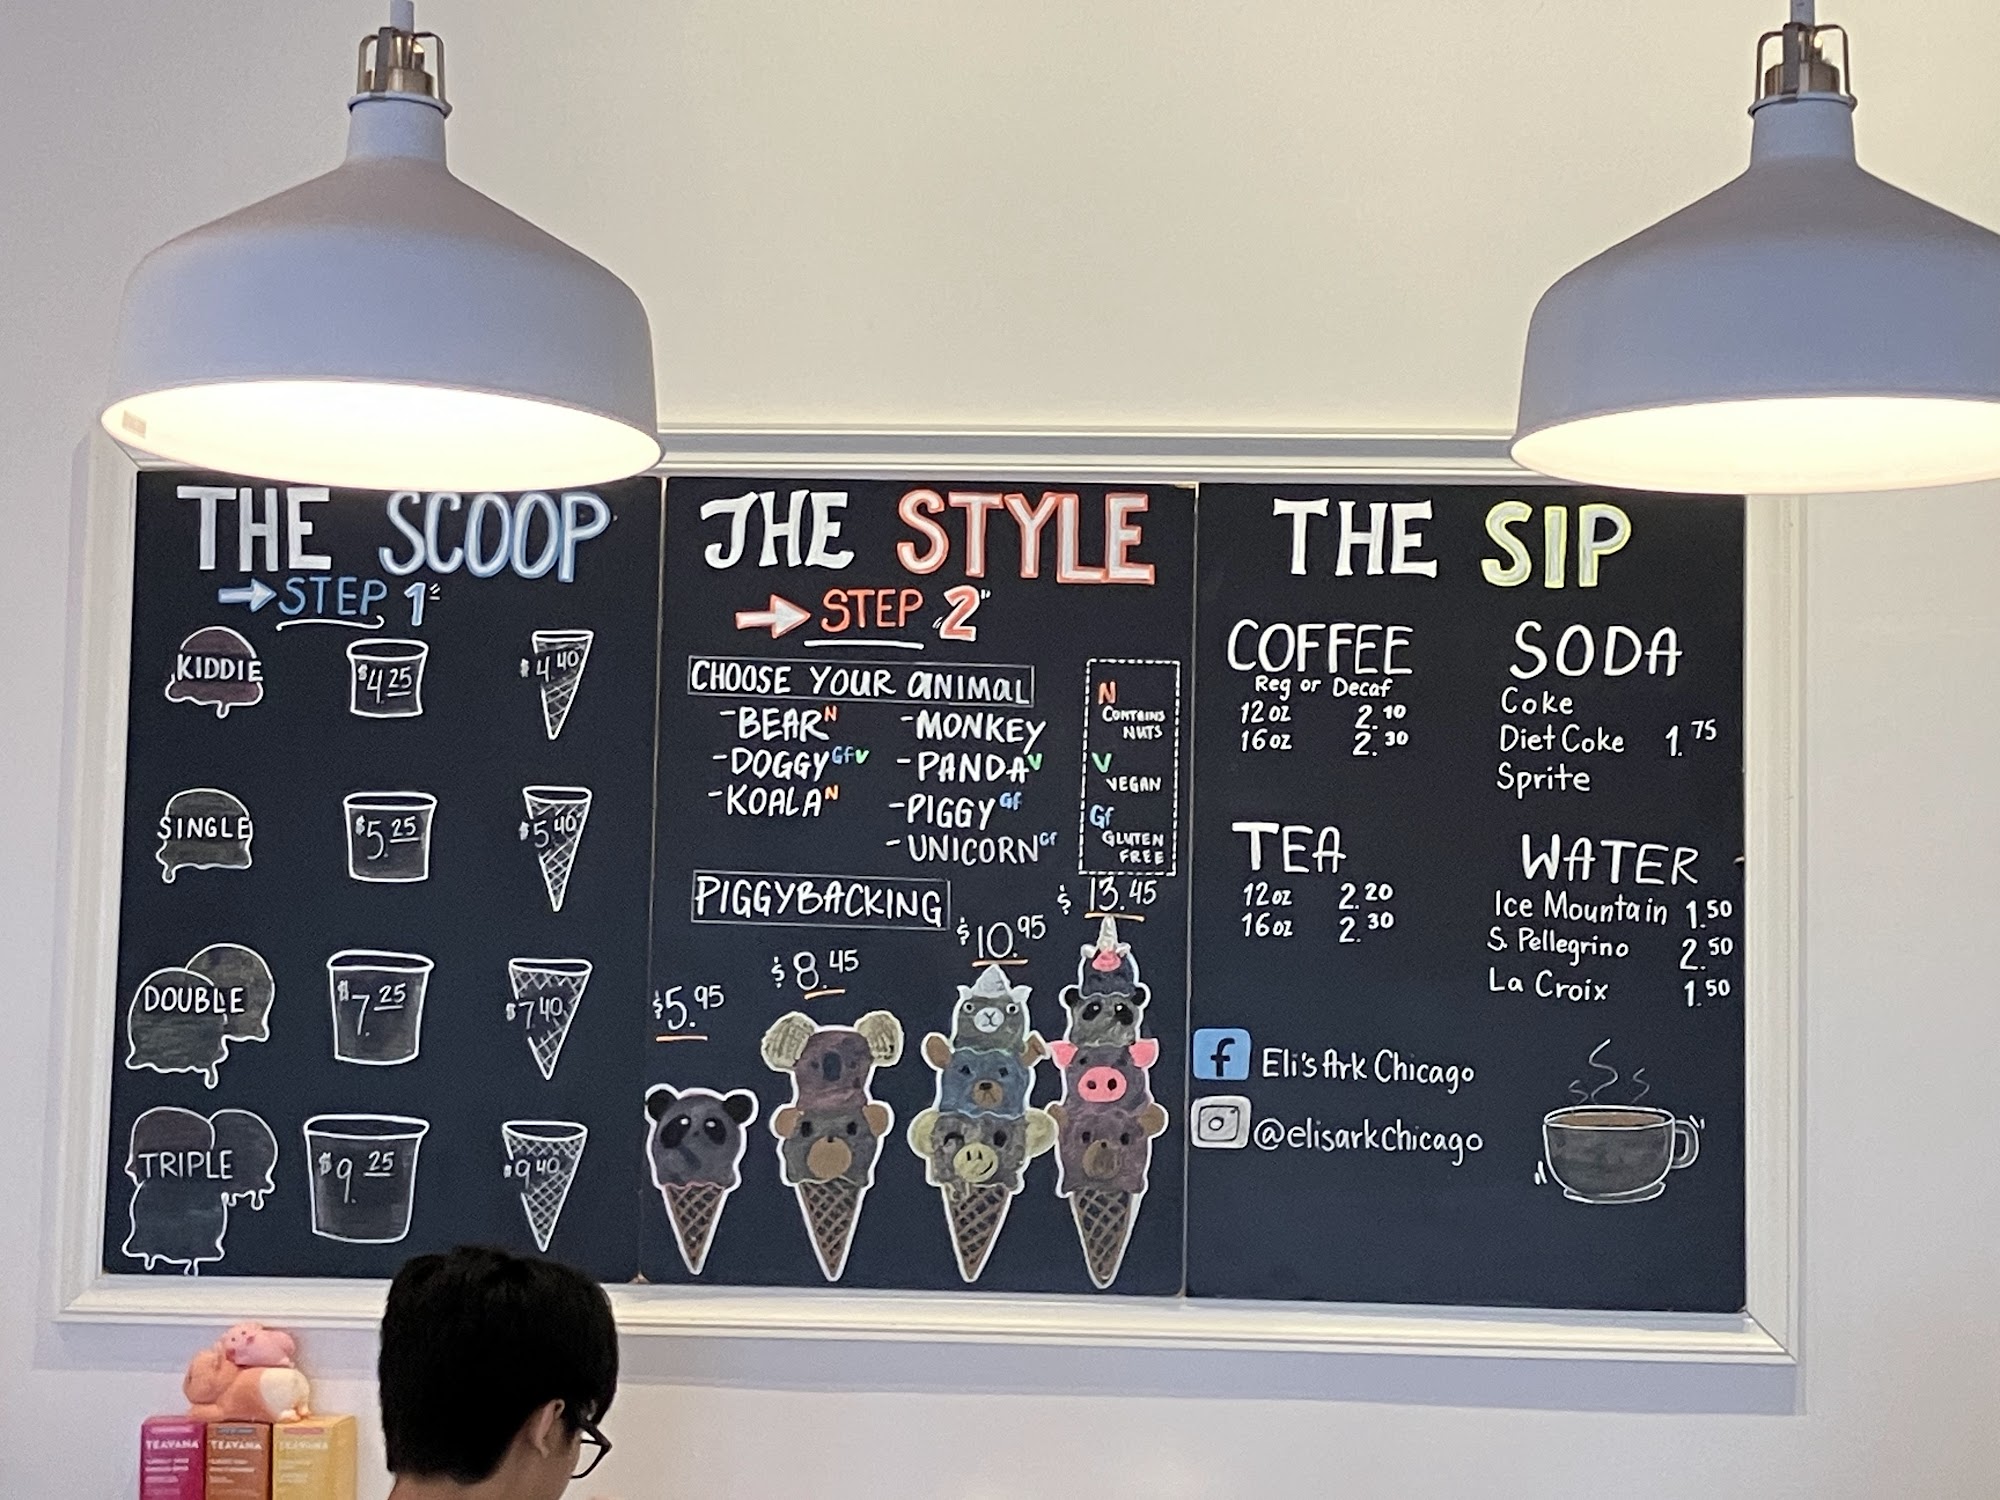 THE SCOOP
STEP 1
KIDDIE $4.25 $4.40
SINGLE $5.25 $5.40
DOUBLE $7.25 $7.40
TRIPLE $9.25 $9.40
THE STYLE
STEP "2"
CHOOSE YOUR ANIMAL
-BEAR N
-DOGGY Gf V
-KOALA N
-MONKEY
-PANDA V
-PIGGY Gf
-UNICORN Gf
N
CONTAINS
NUTS
V
VEGAN
Gf
GLUTEN
FREE
PIGGYBACKING
$5.95
$8.45
$10.95
$13.45
THE SIP
COFFEE
Reg or Decaf
12oz 2.10
16oz 2.30
TEA
12oz 2.20
16oz 2.30
SODA
Coke
Diet Coke 1.75
Sprite
WATER
Ice Mountain 1.50
S. Pellegrino 2.50
La Croix 1.50
f Eli's Ark Chicago
@elisarkchicago
TEAVANA
TEAVANA
TEAVANA